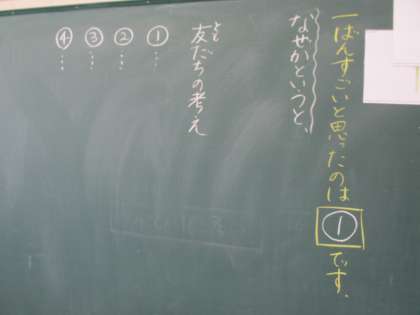 一ばんすごいと思ったのは①です。
なぜかというと、
友だちの考え
とも
①…
②…
③…
④…